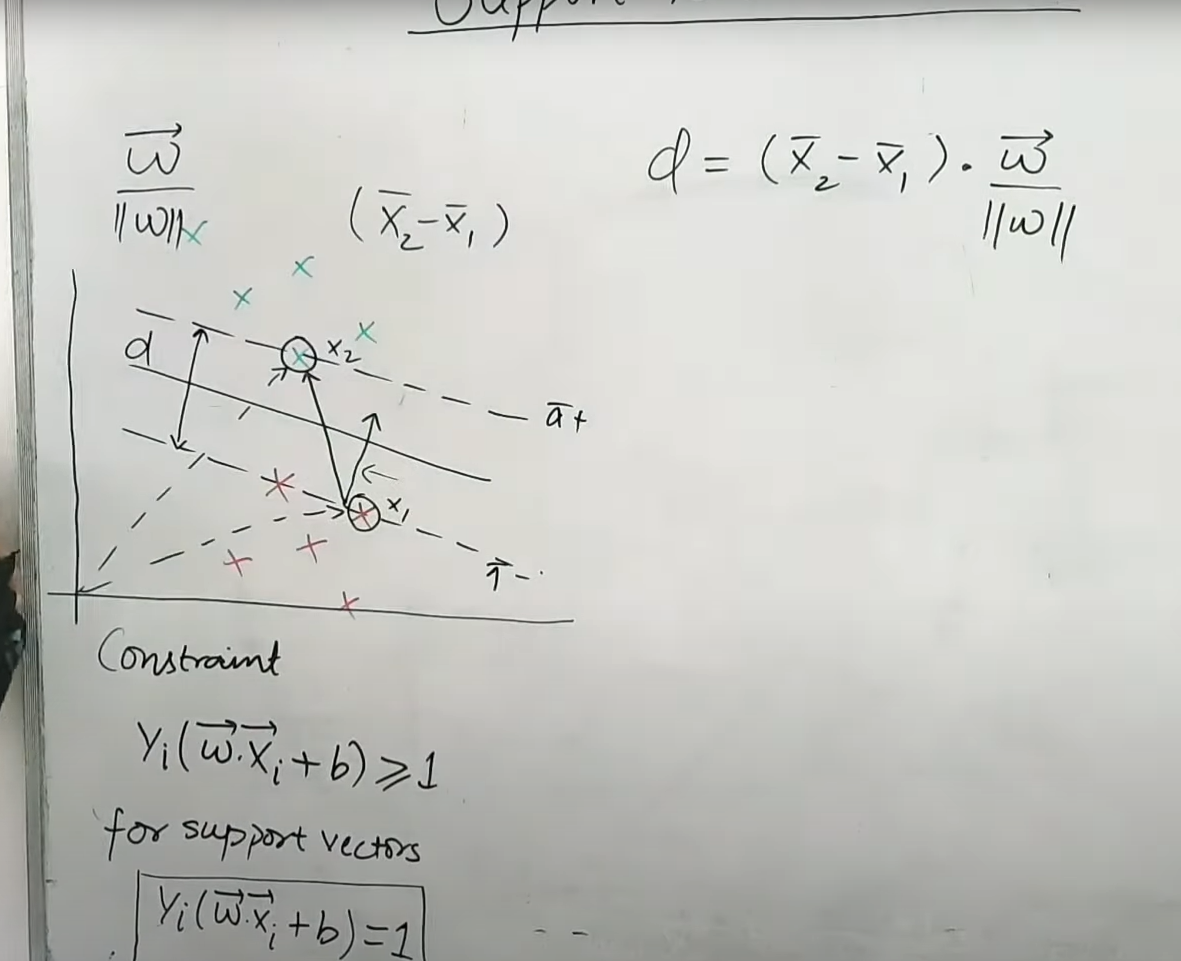 Support
w⃗ / ||w||
(x̄₂ - x̄₁)
d = (x̄₂ - x̄₁) · w⃗ / ||w||
d
x₂
x₁
Constraint
Yᵢ(w⃗·x⃗ᵢ + b) ⩾ 1
for support vectors
Yᵢ(w⃗·x⃗ᵢ + b) = 1